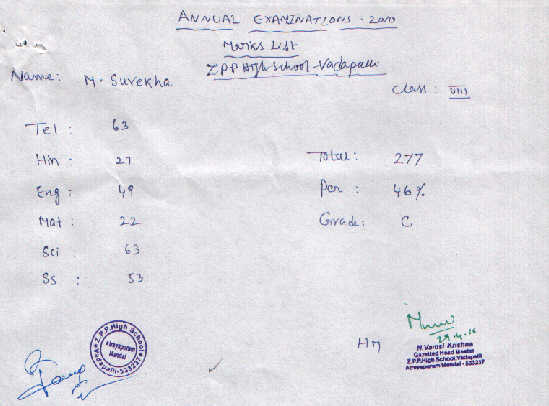 ANNUAL EXAMINATIONS - 2010
Marks List
Z.P.P. High School - Vadapalli
Name: M. Surekha
Class: VIII
Tel : 63
Hin : 27
Eng : 49
Mat : 22
Sci 63
Ss : 53
Total: 277
Per : 46%
Grade: C
HM
Z.P.P. High School
Atreyapuram
Mandal
M. Varasi Krishna
Gazetted Head Master
Z.P.P.High School, Vadapalli
Atreyapuram Mandal - 533237